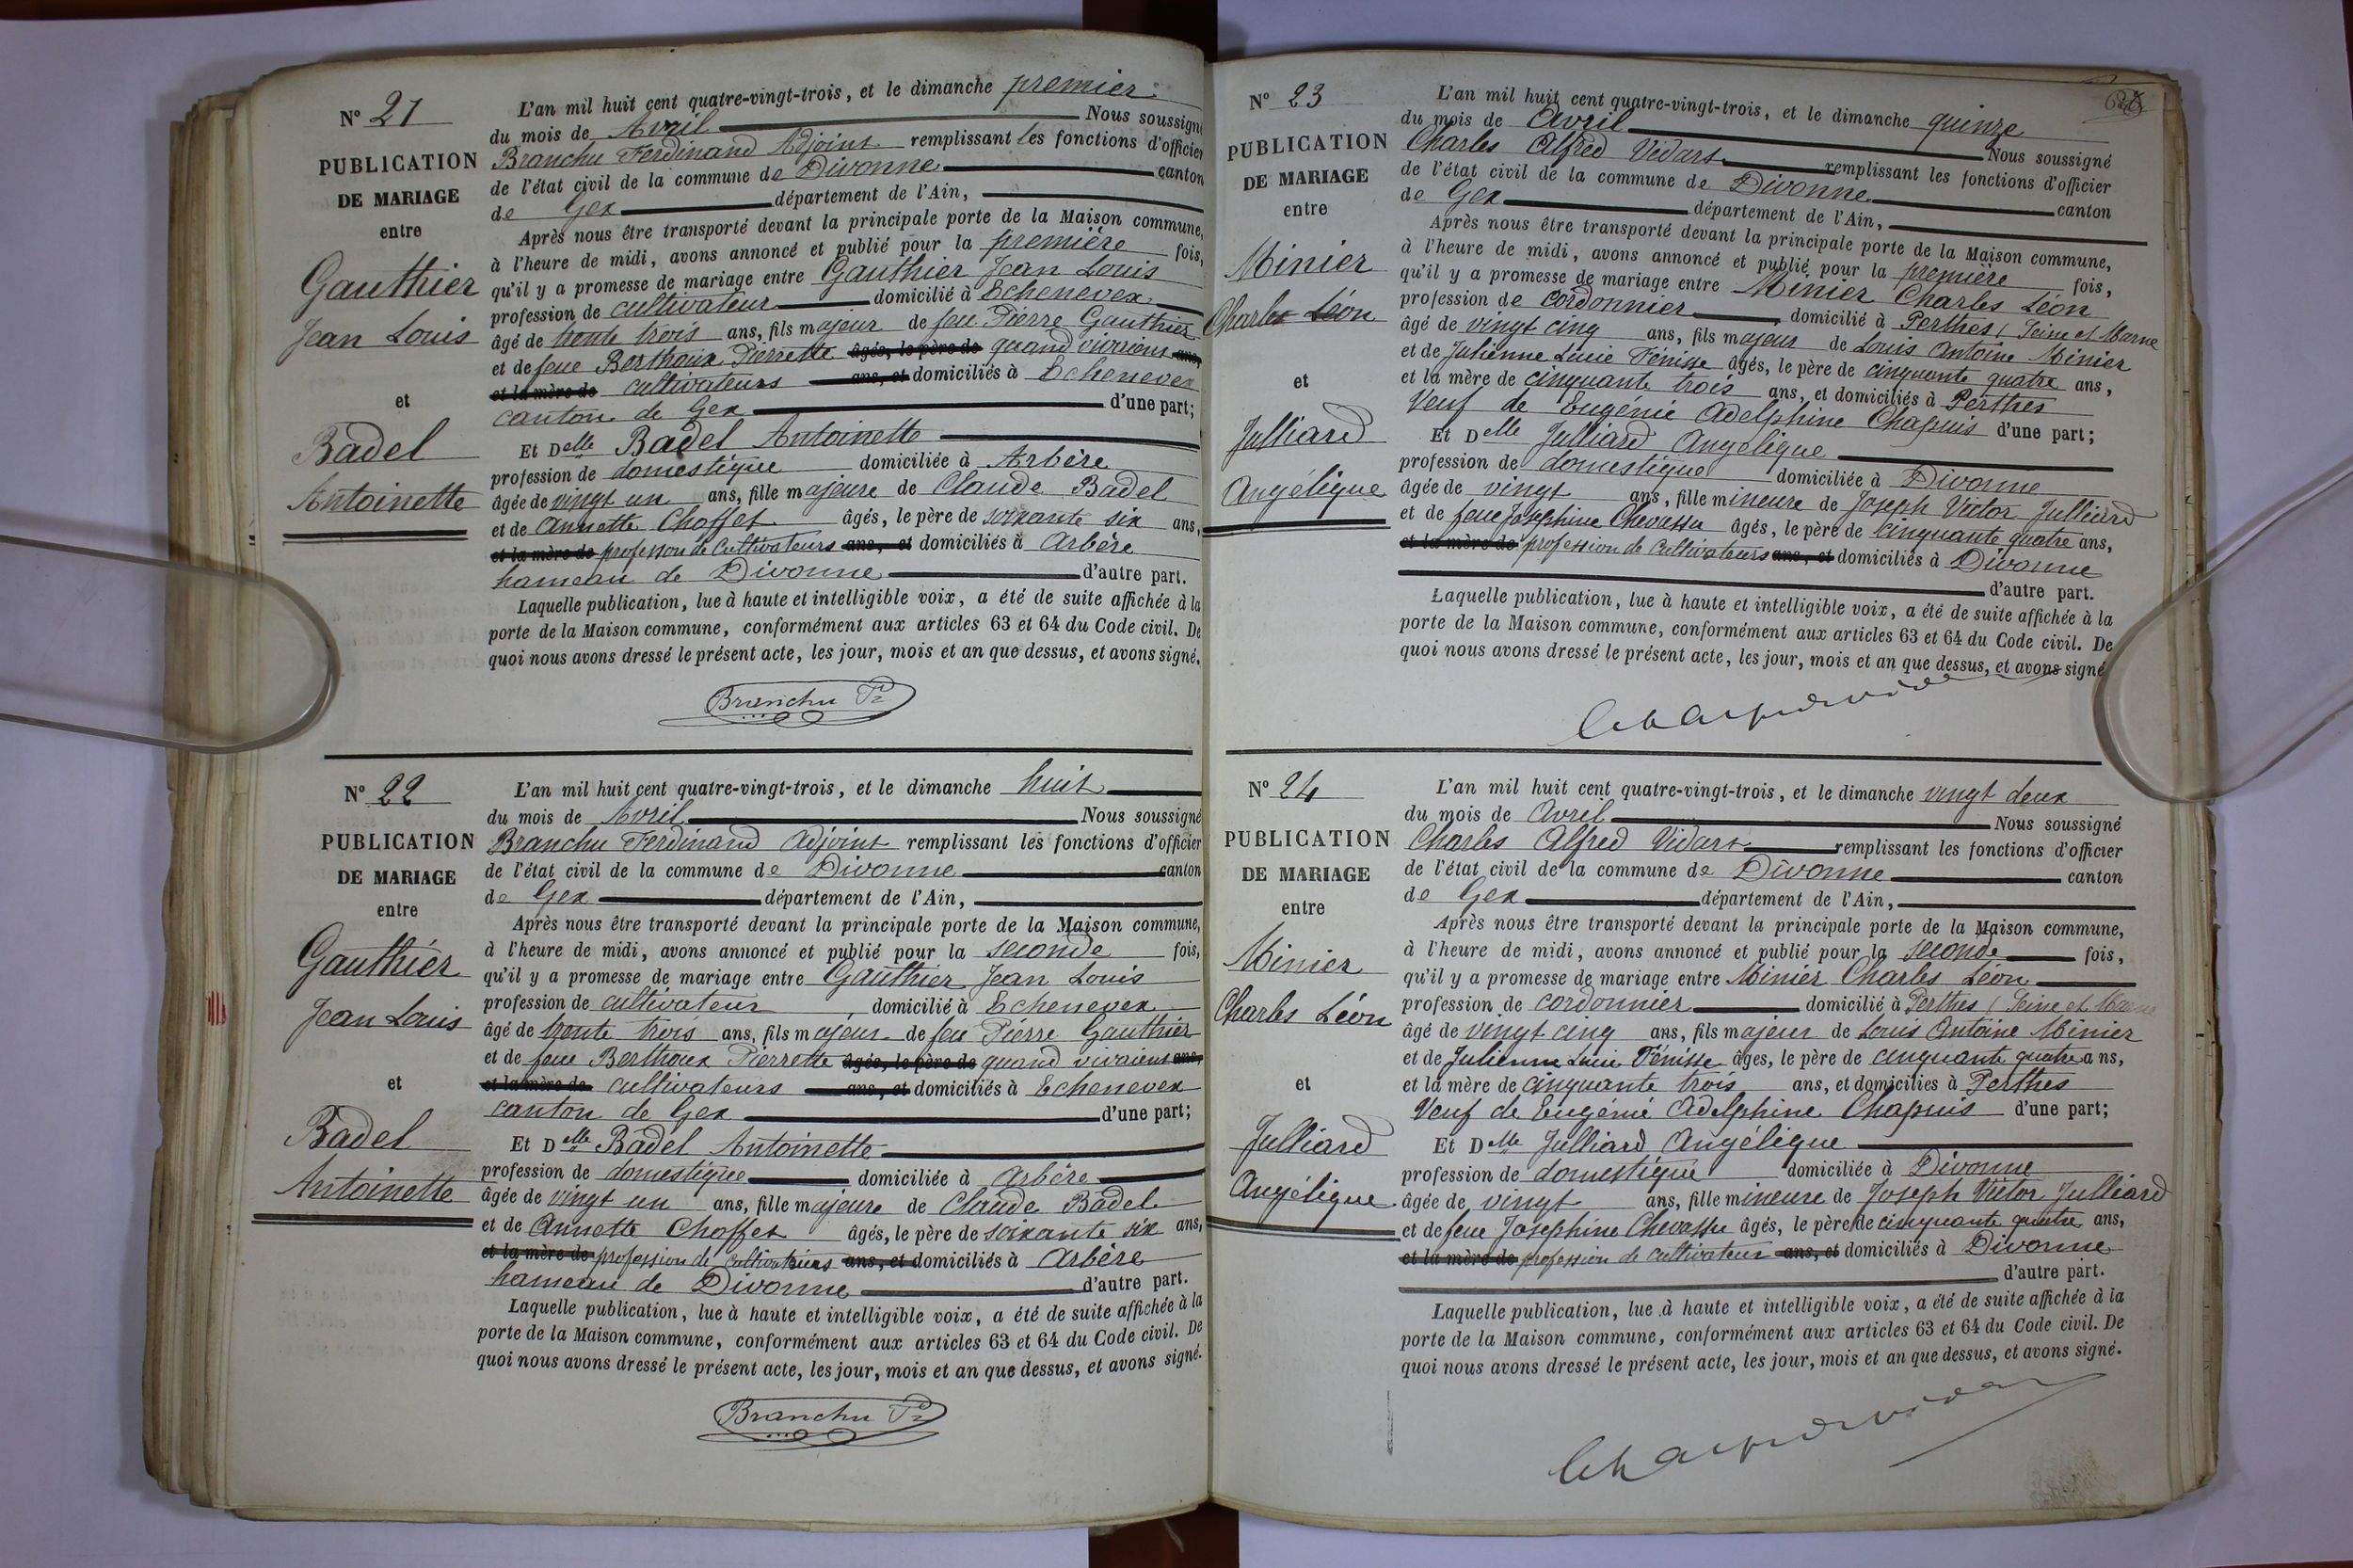 N° 21
PUBLICATION
DE MARIAGE
entre
Gauthier
Jean Louis
et
Badel
Antoinette
L'an mil huit cent quatre-vingt-trois, et le dimanche premier
du mois de Avril Nous soussigné
Branchu Ferdinand Adjoint remplissant les fonctions d'officier
de l'état civil de la commune de Divonne canton
de Gex département de l'Ain,
Après nous être transporté devant la principale porte de la Maison commune,
à l'heure de midi, avons annoncé et publié pour la première fois,
qu'il y a promesse de mariage entre Gauthier Jean Louis
profession de cultivateur domicilié à Echenevex
âgé de trente trois ans, fils majeur de feu Pierre Gauthier
et de feue Berthoux Pierrette âgés, le père de quand vivaient ans,
et la mère de cultivateurs ans, et domiciliés à Echenevex
canton de Gex d'une part;
Et Delle Badel Antoinette
profession de domestique domiciliée à Arbère
âgée de vingt un ans, fille majeure de Claude Badel
et de Annette Choffet âgés, le père de soixante six ans,
et la mère de profession de Cultivateurs ans, et domiciliés à Arbère
hameau de Divonne d'autre part.
Laquelle publication, lue à haute et intelligible voix, a été de suite affichée à la
porte de la Maison commune, conformément aux articles 63 et 64 du Code civil. De
quoi nous avons dressé le présent acte, les jour, mois et an que dessus, et avons signé.
Branchu Fd
N° 22
PUBLICATION
DE MARIAGE
entre
Gauthier
Jean Louis
et
Badel
Antoinette
L'an mil huit cent quatre-vingt-trois, et le dimanche huit
du mois de Avril Nous soussigné
Branchu Ferdinand Adjoint remplissant les fonctions d'officier
de l'état civil de la commune de Divonne canton
de Gex département de l'Ain,
Après nous être transporté devant la principale porte de la Maison commune,
à l'heure de midi, avons annoncé et publié pour la seconde fois,
qu'il y a promesse de mariage entre Gauthier Jean Louis
profession de cultivateur domicilié à Echenevex
âgé de trente trois ans, fils majeur de feu Pierre Gauthier
et de feue Berthoux Pierrette âgés, le père de quand vivaient ans,
et la mère de cultivateurs ans, et domiciliés à Echenevex
canton de Gex d'une part;
Et Delle Badel Antoinette
profession de domestique domiciliée à Arbère
âgée de vingt un ans, fille majeure de Claude Badel
et de Annette Choffet âgés, le père de soixante six ans,
et la mère de profession de Cultivateurs ans, et domiciliés à Arbère
hameau de Divonne d'autre part.
Laquelle publication, lue à haute et intelligible voix, a été de suite affichée à la
porte de la Maison commune, conformément aux articles 63 et 64 du Code civil. De
quoi nous avons dressé le présent acte, les jour, mois et an que dessus, et avons signé.
Branchu Fd
N° 23
PUBLICATION
DE MARIAGE
entre
Minier
Charles Léon
et
Julliard
Angélique
L'an mil huit cent quatre-vingt-trois, et le dimanche quinze
du mois de Avril Nous soussigné
Charles Alfred Vidart remplissant les fonctions d'officier
de l'état civil de la commune de Divonne canton
de Gex département de l'Ain,
Après nous être transporté devant la principale porte de la Maison commune,
à l'heure de midi, avons annoncé et publié pour la première fois,
qu'il y a promesse de mariage entre Minier Charles Léon
profession de cordonnier domicilié à Perthes (Seine et Marne
âgé de vingt cinq ans, fils majeur de Louis Antoine Minier
et de Julienne Lucie Fénisse âgés, le père de cinquante quatre ans,
et la mère de cinquante trois ans, et domiciliés à Perthes
Veuf de Eugénie Adelphine Chapuis d'une part;
Et Delle Julliard Angélique
profession de domestique domiciliée à Divonne
âgée de vingt ans, fille mineure de Joseph Victor Julliard
et de feue Joséphine Chevassu âgés, le père de cinquante quatre ans,
et la mère de profession de Cultivateurs ans, et domiciliés à Divonne
d'autre part.
Laquelle publication, lue à haute et intelligible voix, a été de suite affichée à la
porte de la Maison commune, conformément aux articles 63 et 64 du Code civil. De
quoi nous avons dressé le présent acte, les jour, mois et an que dessus, et avons signé
N° 24
PUBLICATION
DE MARIAGE
entre
Minier
Charles Léon
et
Julliard
Angélique
L'an mil huit cent quatre-vingt-trois, et le dimanche vingt deux
du mois de Avril Nous soussigné
Charles Alfred Vidart remplissant les fonctions d'officier
de l'état civil de la commune de Divonne canton
de Gex département de l'Ain,
Après nous être transporté devant la principale porte de la Maison commune,
à l'heure de midi, avons annoncé et publié pour la seconde fois,
qu'il y a promesse de mariage entre Minier Charles Léon
profession de cordonnier domicilié à Perthes (Seine et Marne
âgé de vingt cinq ans, fils majeur de Louis Antoine Minier
et de Julienne Lucie Fénisse âges, le père de cinquante quatre ans,
et la mère de cinquante trois ans, et domicilies à Perthes
Veuf de Eugénie Adelphine Chapuis d'une part;
Et Delle Julliard Angélique
profession de domestique domiciliée à Divonne
âgée de vingt ans, fille mineure de Joseph Victor Julliard
et de feue Joséphine Chevassu âgés, le père de cinquante quatre ans,
et la mère de profession de Cultivateur ans, et domiciliés à Divonne
d'autre part.
Laquelle publication, lue à haute et intelligible voix, a été de suite affichée à la
porte de la Maison commune, conformément aux articles 63 et 64 du Code civil. De
quoi nous avons dressé le présent acte, les jour, mois et an que dessus, et avons signé.